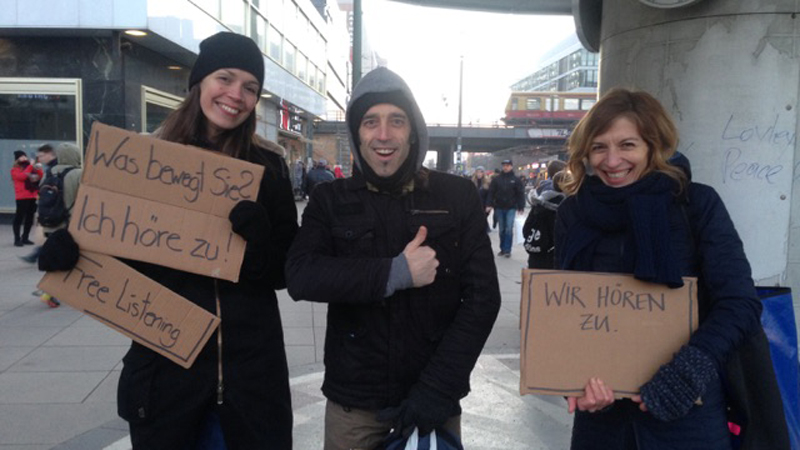 Was bewegt Sie?
Ich höre zu!
Free Listening
WIR HÖREN
ZU.
Peace